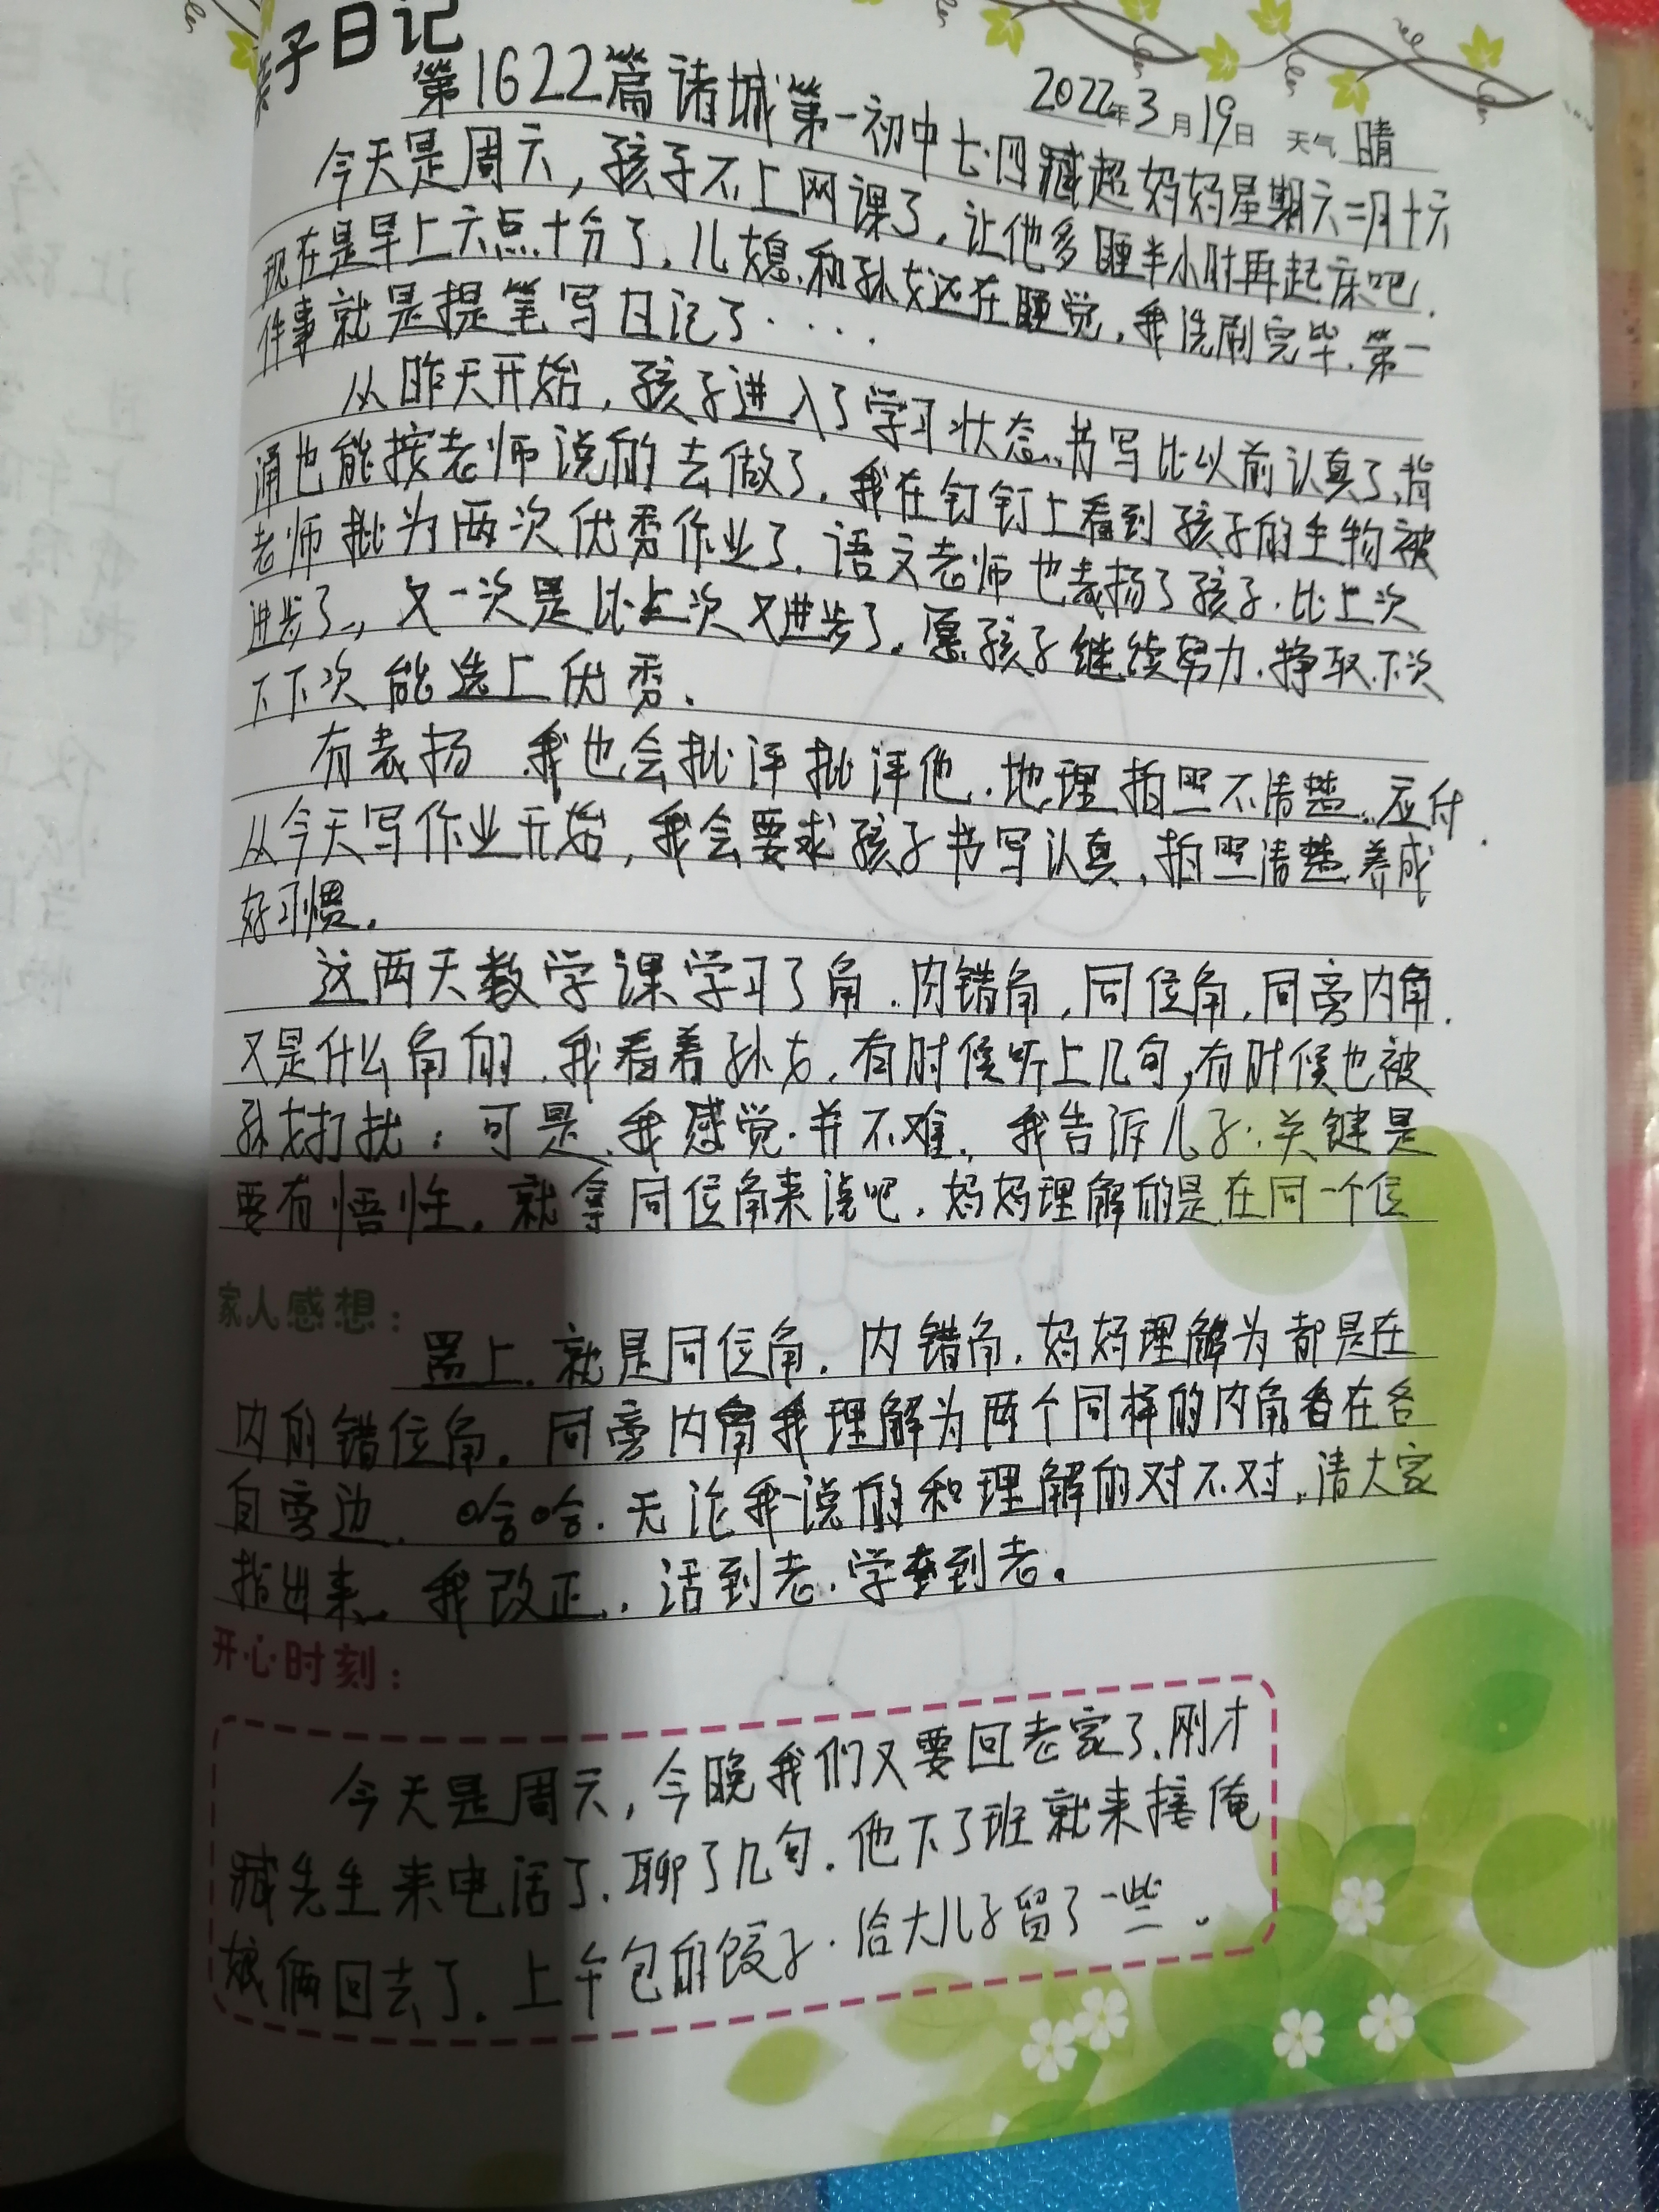 子日记
2022年3月19日 天气 晴
第1622篇诸城第一初中七.四臧超妈妈星期六二月十六
今天是周六，孩子不上网课了，让他多睡半小时再起床吧.
现在是早上六点十分了，儿媳.和孙女还在睡觉，我洗刷完毕.第一
件事就是提笔写日记了·····
从昨天开始，孩子进入了学习状态.书写比以前认真了，背
诵也能按老师说的去做了，我在钉钉上看到孩子的生物被
老师批为两次优秀作业了.语文老师也表扬了孩子.比上次
进步了，又一次是比上次又进步了。愿孩子继续努力.挣取下次
下下次能选上优秀.
有表扬.我也会批评批评他.地理拍照不清楚..应付.
从今天写作业开始，我会要求孩子书写认真，拍照清楚.养成
好习惯.
这两天数学课学习了角.内错角，同位角，同旁内角.
又是什么角的.我看着孙女，有时候听上几句，有时候也被
孙女打扰；可是.我感觉.并不难.我告诉儿子:关键是
要有悟性.就拿同位角来说吧.妈妈理解的是在同一个位
家人感想：
置上.就是同位角.内错角.妈妈理解为都是在
内的错位角.同旁内角我理解为两个同样的内角.各在各
自旁边.哈哈.无论我说的和理解的对不对.请大家
指出来.我改正..活到老.学到老。
开心时刻：
今天是周六，今晚我们又要回老家了.刚才
臧先生来电话了.聊了几句.他下了班就来接俺
娘俩回去了.上午包的饺子.给大儿子留了一些.